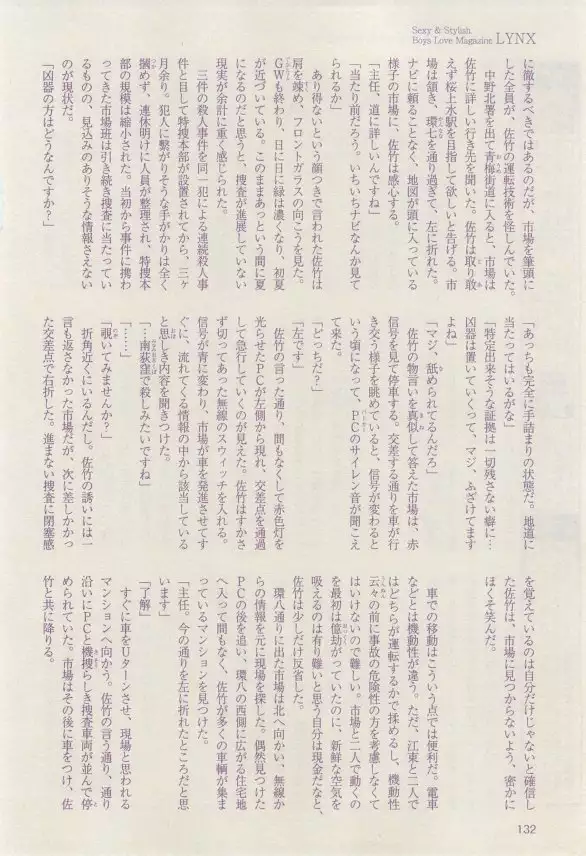 Sexy & Stylish
Boys Love Magazine LYNX
に徹するべきではあるのだが、市場を筆頭に
した全員が、佐竹の運転技術を怪しんでいた。
中野北署を出て青梅街道に入ると、市場は
佐竹に詳しい行き先を聞いた。佐竹は取り敢
えず桜上水駅を目指して欲しいと告げる。市
場は頷き、環七を通り過ぎて、左に折れた。
ナビに頼ることなく、地図が頭に入っている
様子の市場に、佐竹は感心する。
「主任、道に詳しいんですね」
「当たり前だろう。いちいちナビなんか見て
られるか」
あり得ないという顔つきで言われた佐竹は
肩を竦め、フロントガラスの向こうを見た。
GWも終わり、日に日に緑は濃くなり、初夏
が近づいている。このままあっという間に夏
になるのだと思うと、捜査が進展していない
現実が余計に重く感じられた。
三件の殺人事件を同一犯による連続殺人事
件と目して特捜本部が設置されてから、三ヶ
月余り。犯人に繋がりそうな手がかりは全く
摑めず、連休明けに人員が整理され、特捜本
部の規模は縮小された。当初から事件に携わ
ってきた市場班は引き続き捜査に当たってい
るものの、見込みのありそうな情報さえない
のが現状だ。
「凶器の方はどうなんですか?」
「あっちも完全に手詰まりの状態だ。地道に
当たってはいるがな」
「特定出来そうな証拠は一切残さない癖に…
凶器は置いていくって、マジ、ふざけてます
よね」
「マジ、舐められてるんだろ」
佐竹の物言いを真似して答えた市場は、赤
信号を見て停車する。交差する通りを車が行
き交う様子を眺めていると、信号が変わると
いう頃になって、PCのサイレン音が聞こえ
て来た。
「どっちだ?」
「左です」
佐竹の言った通り、間もなくして赤色灯を
光らせたPCが左側から現れ、交差点を通過
して急行していくのが見えた。佐竹はすかさ
ず切ってあった無線のスウィッチを入れる。
信号が青に変わり、市場が車を発進させてす
ぐに、流れてくる情報の中から該当している
と思しき内容を聞きつけた。
「…南荻窪で殺しみたいですね」
「……」
「覗いてみませんか?」
折角近くにいるんだし。佐竹の誘いには一
言も返さなかった市場だが、次に差しかかっ
た交差点で右折した。進まない捜査に閉塞感
を覚えているのは自分だけじゃないと確信し
た佐竹は、市場に見つからないよう、密かに
ほくそ笑んだ。
車での移動はこういう点では便利だ。電車
などとは機動性が違う。ただ、江東と二人で
はどちらが運転するかで揉めるし、機動性
云々の前に事故の危険性の方を考慮しなくて
はいけないので難しい。市場と二人で動くの
を最初は億劫がっていたのに、新鮮な空気を
吸えるのは有り難いと思う自分は現金だなと、
佐竹は少しだけ反省した。
環八通りに出た市場は北へ向かい、無線か
らの情報を元に現場を探した。偶然見つけた
PCの後を追い、環八の西側に広がる住宅地
へ入って間もなく、佐竹が多くの車輌が集ま
っているマンションを見つけた。
「主任。今の通りを左に折れたところだと思
います」
「了解」
すぐに車をUターンさせ、現場と思われる
マンションへ向かう。佐竹の言う通り、通り
沿いにPCと機捜らしき捜査車両が並んで停
められていた。市場はその後に車をつけ、佐
竹と共に降りる。
132